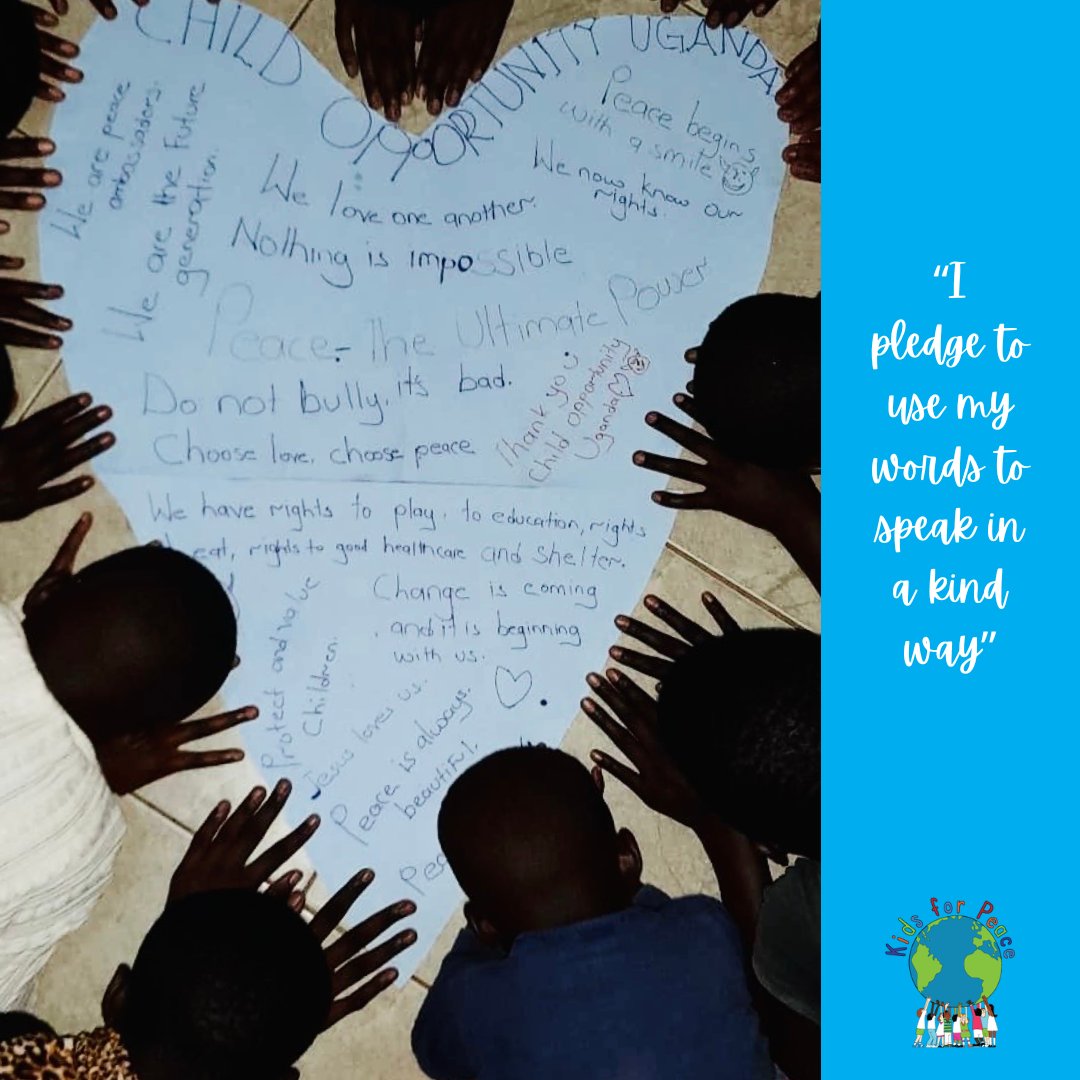 CHILD OPPORTUNITY UGANDA
We are peace
ambassadors.
We are the Future
generation.
Peace begins
with a smile
We now know our
rights.
We love one another.
Nothing is impossible
Peace - The Ultimate Power
Do not bully, it's bad.
Choose love, choose peace
Thank you
Child opportunity
Uganda
We have rights to play, to education, rights
eat, rights to good healthcare and shelter.
Change is coming
and it is beginning
with us.
Protect and value
Children.
Jesus loves us.
Peace is always
beautiful.
"I
pledge to
use my
words to
speak in
a kind
way"
Kids for Peace